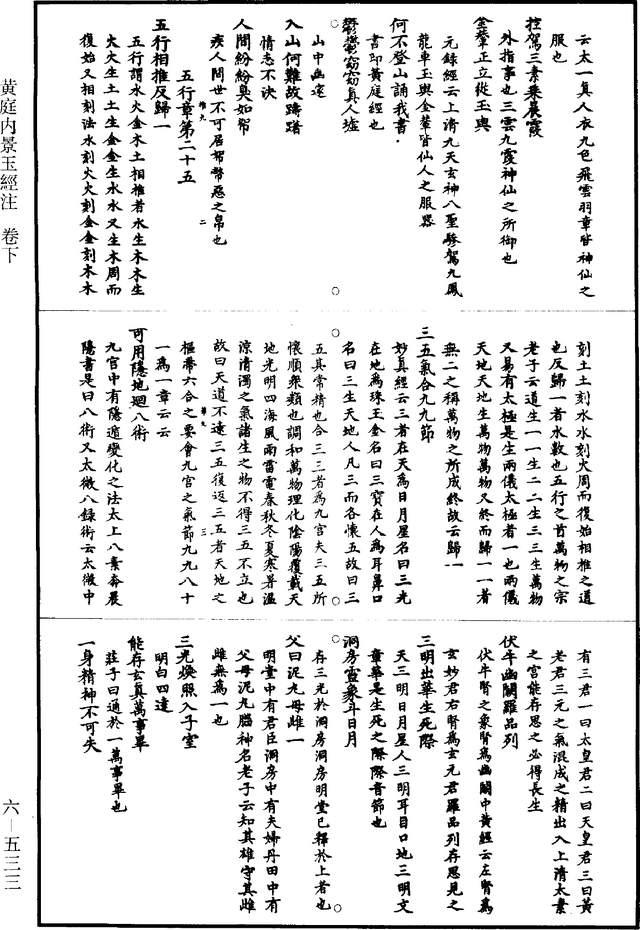 黃庭內景玉經注　卷下
六—五三三
云太一真人衣九色飛雲羽章皆神仙之
服也
控駕三素乘晨霞
外指事也三雲九霞神仙之所御也
金輦正立從玉輿
元錄經云上清九天玄神八聖驂駕九鳳
龍車玉輿金輦皆仙人之服器
何不登山誦我書
書即黃庭經也
鬱鬱窈窈真人墟
山中幽邃
入山何難故躊躇
情志不決
人間紛紛臭如帤
疾人間世不可居帤幣惡之帛也
五行章第二十五
五行相推反歸一
五行謂水火金木土相推者水生木木生
火火生土土生金金生水水又生木周而
復始又相刻法水刻火火刻金金刻木木
刻土土刻水水刻火周而復始相推之道
也反歸一者水數也五行之首萬物之宗
老子云道生一一生二二生三三生萬物
又易有太極是生兩儀太極者一也兩儀
天地天地生萬物萬物又終而歸一一者
無二之稱萬物之所成終故云歸一
三五氣合九九節
妙真經云三者在天為日月星名曰三光
在地為珠玉金名曰三寶在人為耳鼻口
名曰三生天地人凡三而各懷五故曰三
五其常精也合三三者為九宮夫三五所
懷順衆類也調和萬物理化陰陽覆載天
地光明四海風雨雷電春秋冬夏寒暑溫
涼清濁之氣諸生之物不得三五不立也
故曰天道不遠三五復返三五者天地之
樞帶六合之要會九宮之氣節九九八十
一為一章云云
可用隱地迴八術
九宮中有隱遁變化之法太上八素奔晨
隱書是曰八術又太微八錄術云太微中
有三君一曰太皇君二曰天皇君三曰黃
老君三元之氣混成之精出入上清太素
之宮能存思之必得長生
伏牛幽闕羅品列
伏牛腎之象腎為幽闕中黃經云左腎為
玄妙君右腎為玄元君羅品列存思見之
三明出華生死際
天三明日月星人三明耳目口地三明文
章華是生死之際際音節也
洞房靈象斗日月
存三光於洞房洞房明堂已釋於上若也
父曰泥丸母雌一
明堂中有君臣洞房中有夫婦丹田中有
父母泥丸腦神名老子云知其雄守其雌
雌無為一也
三光煥照入子室
明白四達
能存玄真萬事畢
莊子曰通於一萬事畢也
一身精神不可失